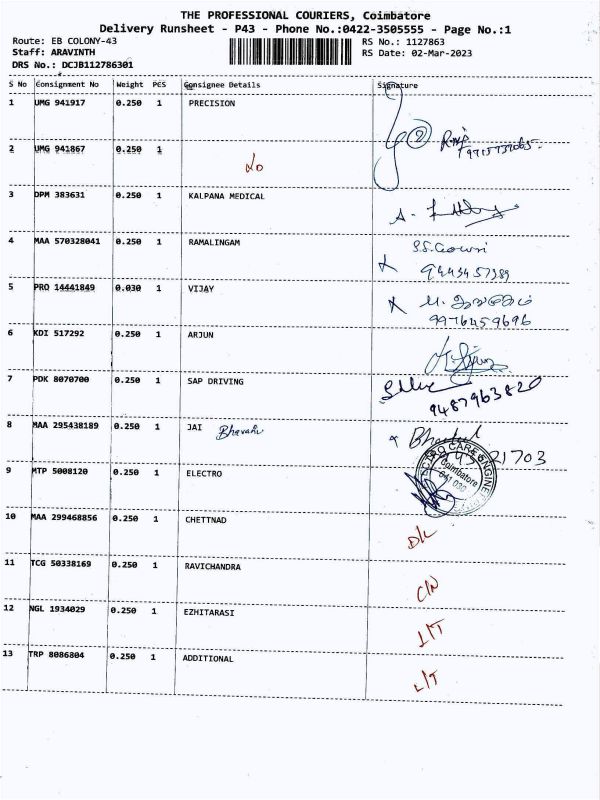 THE PROFESSIONAL COURIERS, Coimbatore
Delivery Runsheet - P43 - Phone No.:0422-3505555 - Page No.:1
Route: EB COLONY-43
RS No.: 1127863
Staff: ARAVINTH
RS Date: 02-Mar-2023
DRS No.: DCJB112786301
S No Consignment No Weight PCS Consignee Details Signature
1 UMG 941917 0.250 1 PRECISION
2 UMG 941867 0.250 1
NO
3 DPM 383631 0.250 1 KALPANA MEDICAL
4 MAA 570328041 0.250 1 RAMALINGAM
S.S. Gowri
9443457389
5 PRO 14441849 0.030 1 VIJAY
9976459696
6 KDI 517292 0.250 1 ARJUN
7 PDK 8070700 0.250 1 SAP DRIVING
9487963820
8 MAA 295438189 0.250 1 JAI
9 MTP 5008120 0.250 1 ELECTRO
Coimbatore
10 MAA 299468856 0.250 1 CHETTNAD
D/L
11 TCG 50338169 0.250 1 RAVICHANDRA
C/N
12 NGL 1934029 0.250 1 EZHITARASI
13 TRP 8086804 0.250 1 ADDITIONAL